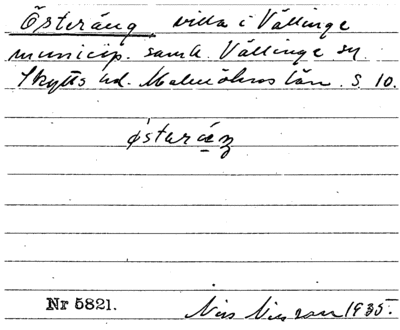 Österäng villa i Vällinge
municip. samh. Vällinge sn.
Skytts hd. Malmöhus län. S. 10.
östəræŋ
Nr 5821.
Nils Nilsson 1935.